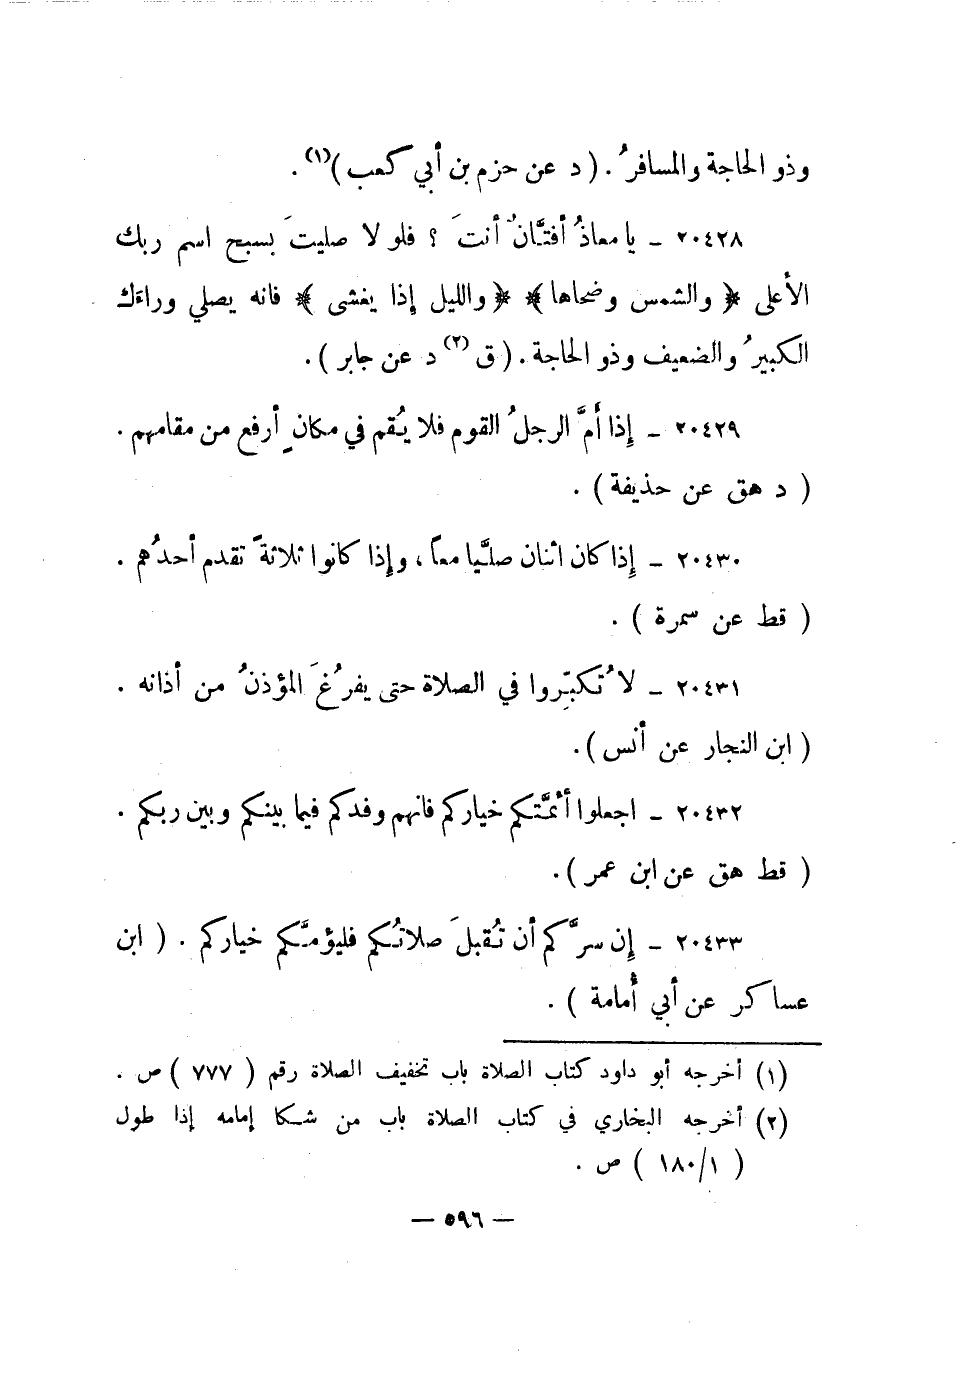 وذو الحاجة والمسافرُ . ( د عن حزم بن أبي كعب )(١) .
٢٠٤٢٨ ـ يا معاذُ أفتَّانٌ أنتَ ؟ فلو لا صليتَ بسبح اسم ربك
الأعلى ﴿ والشمس وضحاها ﴾ ﴿ والليل إذا يغشى ﴾ فانه يصلي وراءَك
الكبيرُ والضعيف وذو الحاجة . ( ق (٢) د عن جابر ) .
٢٠٤٢٩ ـ إذا أمَّ الرجلُ القوم فلا يُقم في مكانٍ أرفع من مقامهم .
( د هق عن حذيفة ) .
٢٠٤٣٠ ـ إذا كان اثنان صلَّيا معاً ، وإذا كانوا ثلاثةً تقدم أحدُهم .
( قط عن سمرة ) .
٢٠٤٣١ ـ لا تُكبِّروا في الصلاة حتى يفرُغَ المؤذنُ من أذانه .
( ابن النجار عن أنس ) .
٢٠٤٣٢ ـ اجعلوا أئمَّتكم خياركم فانهم وفدكم فيما بينكم وبين ربكم .
( قط هق عن ابن عمر ) .
٢٠٤٣٣ ـ إن سرَّكم أن تُقبلَ صلاتُكم فليؤمَّكم خياركم . ( ابن
عساكر عن أبي أُمامة ) .
(١) أخرجه أبو داود كتاب الصلاة باب تخفيف الصلاة رقم ( ٧٧٧ ) ص .
(٢) أخرجه البخاري في كتاب الصلاة باب من شكا إمامه إذا طول
( ١/١٨٠ ) ص .
— ٥٩٦ —